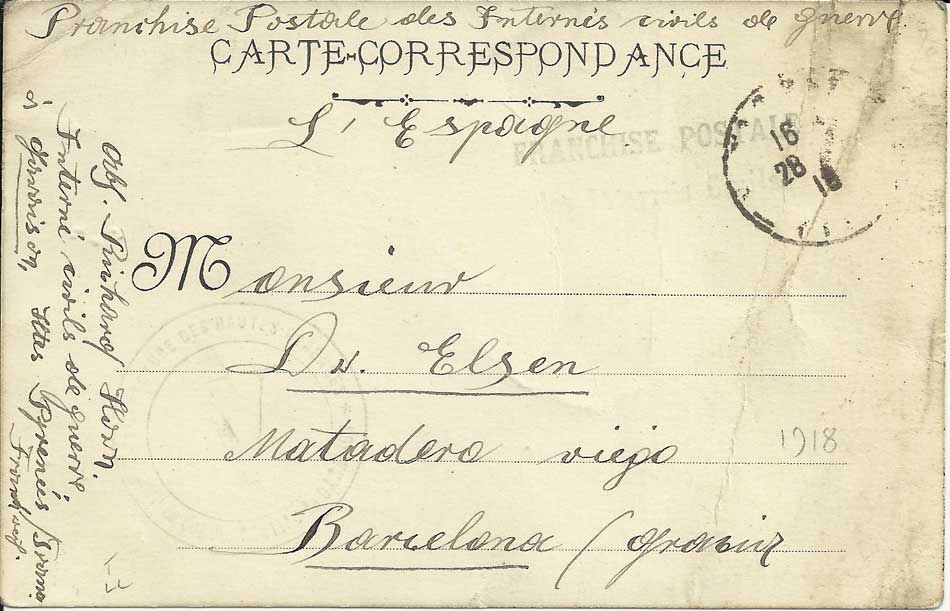 Franchise Postale des Internés civils de guerre.
CARTE-CORRESPONDANCE
L'Espagne
FRANCHISE POSTALE
16
28
18
Monsieur
Dr. Elsen
Matadero viejo
Barcelona / Graciz
1918
Abs. Horn
Interné civils de guerre,
à Garaison,
Htes Pyrenées
Frankreich.